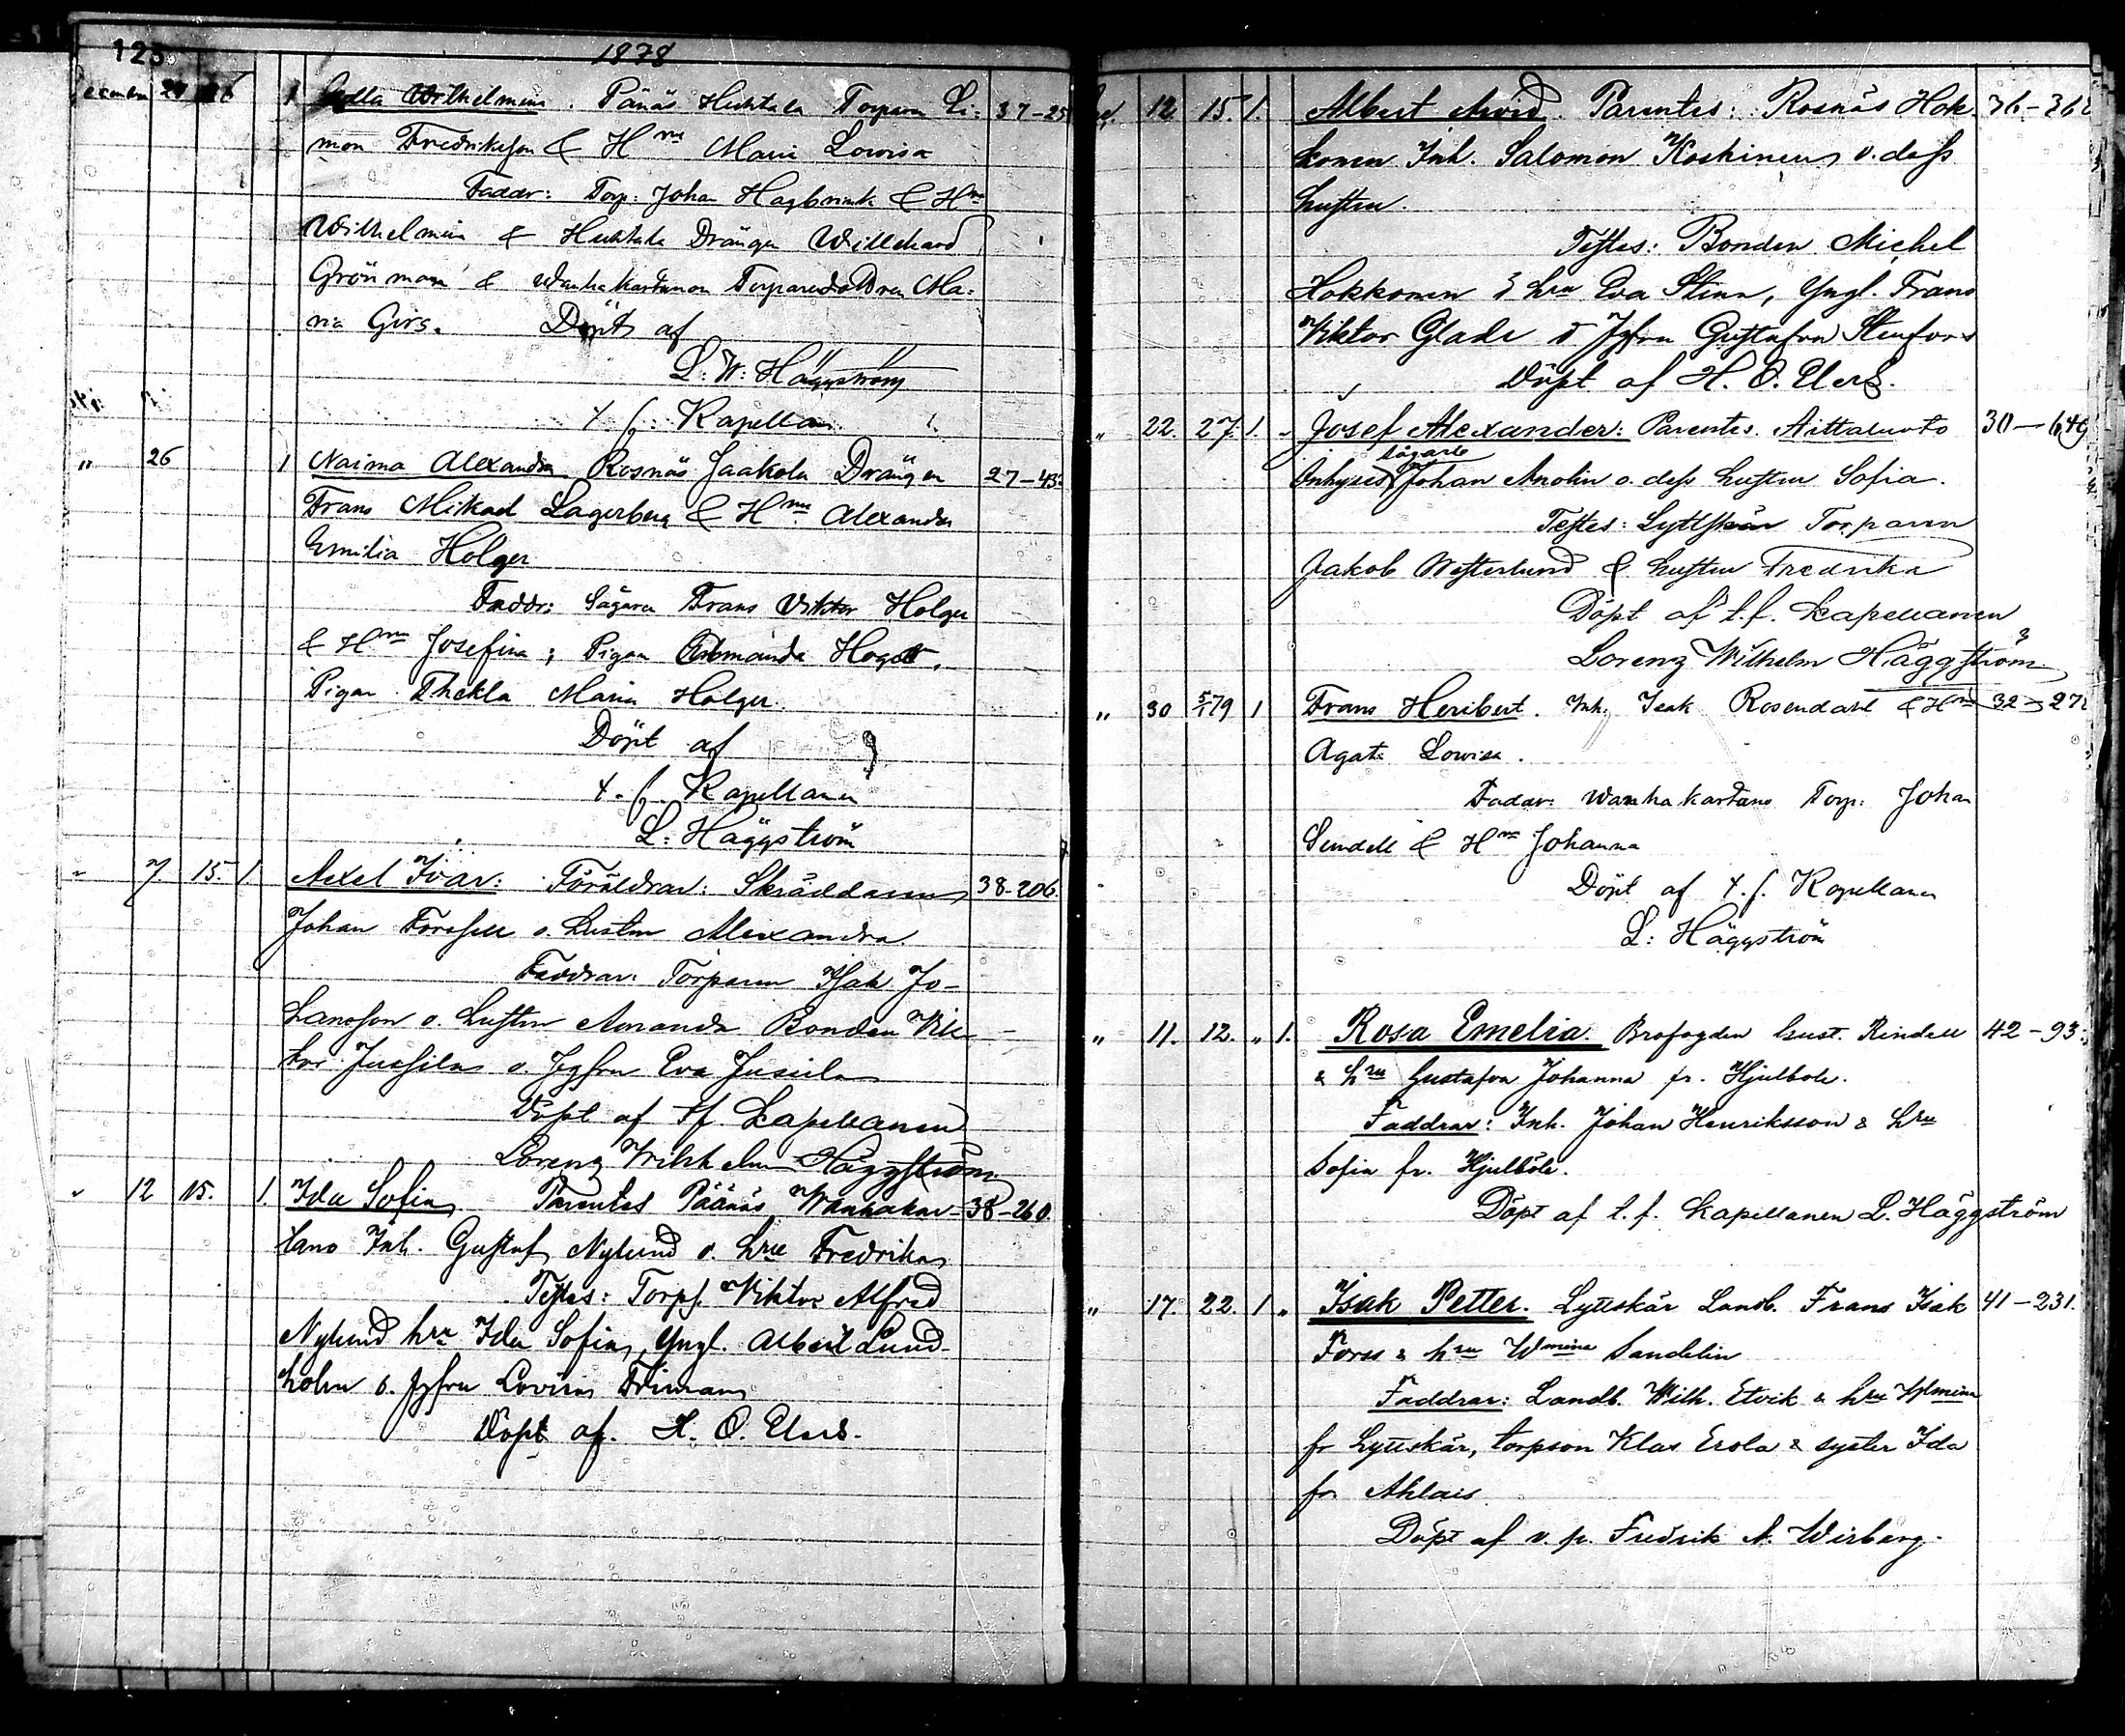 123
1878
December 24 26 1 Wilhelmina. Pånäs Huhtala Torparen Si- 37-25
mon Fredriksson & Hru Maria Lowisa
Faddr: Torp: Johan Hagbrink & Hru
Wilhelmina & Huhtala Drängen Willehard
Grönman & Wanhakartanon Torparedottren Ma-
ria Girs. Döpt af
L. W. Häggström
t. f. Kapellan
" 26 1 Naima Alexandra Rosnäs Jaakola Drängen 27-43
Frans Mikael Lagerberg & Hru Alexandra
Emilia Holger
Faddr: Sågaren Frans Viktor Holger
& Hru Josefina; Pigan Amanda
Pigan Thekla Maria Holger.
Döpt af
t. f. Kapellanen
L: Häggström
" 7. 15. 1. Axel Ivar: Föräldrar: Skräddaren 38-206.
Johan Forssell o. hustrun Alexandra.
Faddrar: Torparen Isak Jo-
hansson o. hustrun Amanda Bonden Vik-
tor Jussila o. Jgfru Eva Jusila
Döpt af tf. kapellanen
Lorenz Wilhelm Häggström
" 12 15. 1. Ida Sofia Parentes Päänäs Wanhakar- 38-260
tano Inh. Gustaf Nylund o. hru Fredrika
Testes: Torps. Viktor Alfred
Nylund hru Ida Sofia, Yngl. Albert Lund-
holm o. Jgfru Lovisa Friman
Döpt af. H. O. Elers.
" 12. 15. 1. Albert Arvid. Parentes: Rosnäs Hok- 36-362
konen Inh. Salomon Koskinen o. dess
hustru.
Testes: Bonden Michel
Hokkonen & hru Eva Stina, Yngl. Frans
Viktor Glade o Jgfru Gustafva Stenfors
Döpt af H. O. Elers.
" 22. 27. 1. " Josef Alexander: Parentes. Aittaluoto 30-649
sågare
Inhyses Johan Anolin o. dess hustru Sofia.
Testes: Lyttskär Torparen
Jakob Westerlund & hustru Fredrika
Döpt af t.f. kapellanen
Lorenz Wilhelm Häggström
" 30 5/1 79 1 Frans Heribert. Inh. Isak Rosendahl & Hru 32-272
Agata Lowisa.
Faddr: Wanhakartano Torp: Johan
Sundell & Hru Johanna
Döpt af t. f. Kapellanen
L: Häggström
" 11. 12. " 1. Rosa Emelia. Brofogden Gust. Rindell 42-93
& hru Gustafva Johanna fr. Hjulböle.
Faddrar: Inh. Johan Henriksson & hru
Sofia fr. Hjulböle.
Döpt af t. f. kapellanen L. Häggström
" 17. 22. 1 " Isak Petter. Lyttskär Landb. Frans Isak 41-231.
Forss & hru Wmina Sandelin
Faddrar: Landb. Wilh. Etvik & hru Wlmina
fr Lyttskär, torpson Klas Erola & syster Ida
fr. Ahlais.
Döpt af v. p. Fredrik A. Wirberg.